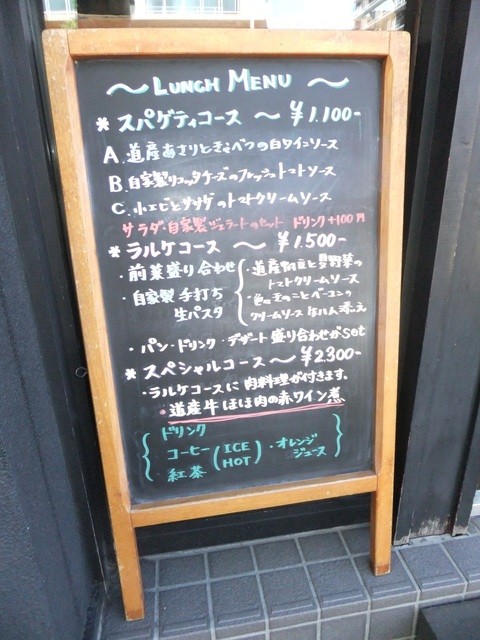 ～ LUNCH MENU ～
* スパゲティコース ～ ¥1.100-
A. 道産あさりときゃべつの白ワインソース
B. 自家製リコッタチーズのフレッシュトマトソース
C. 小エビとササゲのトマトクリームソース
サラダ・自家製ジェラートのセット ドリンク+100円
* ラルケコース ～ ¥1.500-
・前菜盛り合わせ
・自家製 手打ち
生パスタ
・道産 と 野菜の
トマトクリームソース
・色 きのことベーコンの
クリームソース 生ハム添え
・パン・ドリンク・デザート盛り合わせがset
* スペシャルコース～ ¥2.300-
・ラルケコースに 肉料理が付きます。
・道産牛ほほ肉の赤ワイン煮
ドリンク
コーヒー (ICE ・オレンジ
紅茶 HOT) ジュース